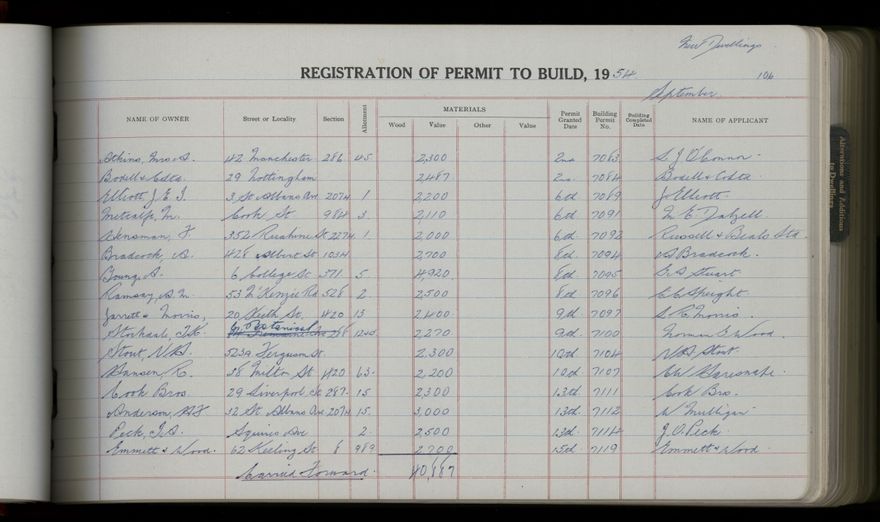 New Dwellings
REGISTRATION OF PERMIT TO BUILD, 1954
106
September
NAME OF OWNER Street or Locality Section Allotment MATERIALS Wood Value Other Value Permit Granted Date Building Permit No. Building Completed Date NAME OF APPLICANT
Atkins, Mrs A. 42 Manchester 286 45 2,300 2nd 7083 S. J. O'Connor
Bodell & Co Ltd 29 Nottingham 2,487 2nd 7084 Bodell & Co Ltd
Elliott J. E. J. 3 St Albans Ave 2074 1 2,200 6th 7089 J. Elliott
Metcalf, M. Cook St 984 3 2,110 6th 7091 Dalzell
352 Ruahine St 2274 1 2,000 6th 7092 Russell & Beals Ltd
Bradcock, A. 428 Albert St 1034 2,700 8th 7094 A Bradcock
Young, A. 6 College St 371 5 4,920 8th 7095 Stuart
Ramsay, A. M. 53 McKenzie Rd 528 2 2,500 8th 7096 Speight
Jarrett & Morris, 20 Keith St. 420 13 2,400 9th 7097 Morris
Stockdale, J. K. Botanical 258 2,270 9th 7100 Norman E Wood
Stout, N. A. 523a Ferguson St. 2,300 10th 7104 N A Stout
Hansen, R. 38 Milton St 420 63 2,200 10th 7107
Cook Bros 29 Liverpool St 287 15 2,300 13th 7111 Cook Bros.
Anderson, 12 St. Albans Ave 2074 15 3,000 13th 7112 W Mulligan
Peck, J. A. Squires Ave 2 2,500 13th 7114 J. A. Peck
Emmett & Wood. 62 Keeling St 8 989 2,700 15th 7119 Emmett & Wood
Carried Forward 40,887
Alterations and Additions
to Dwellings